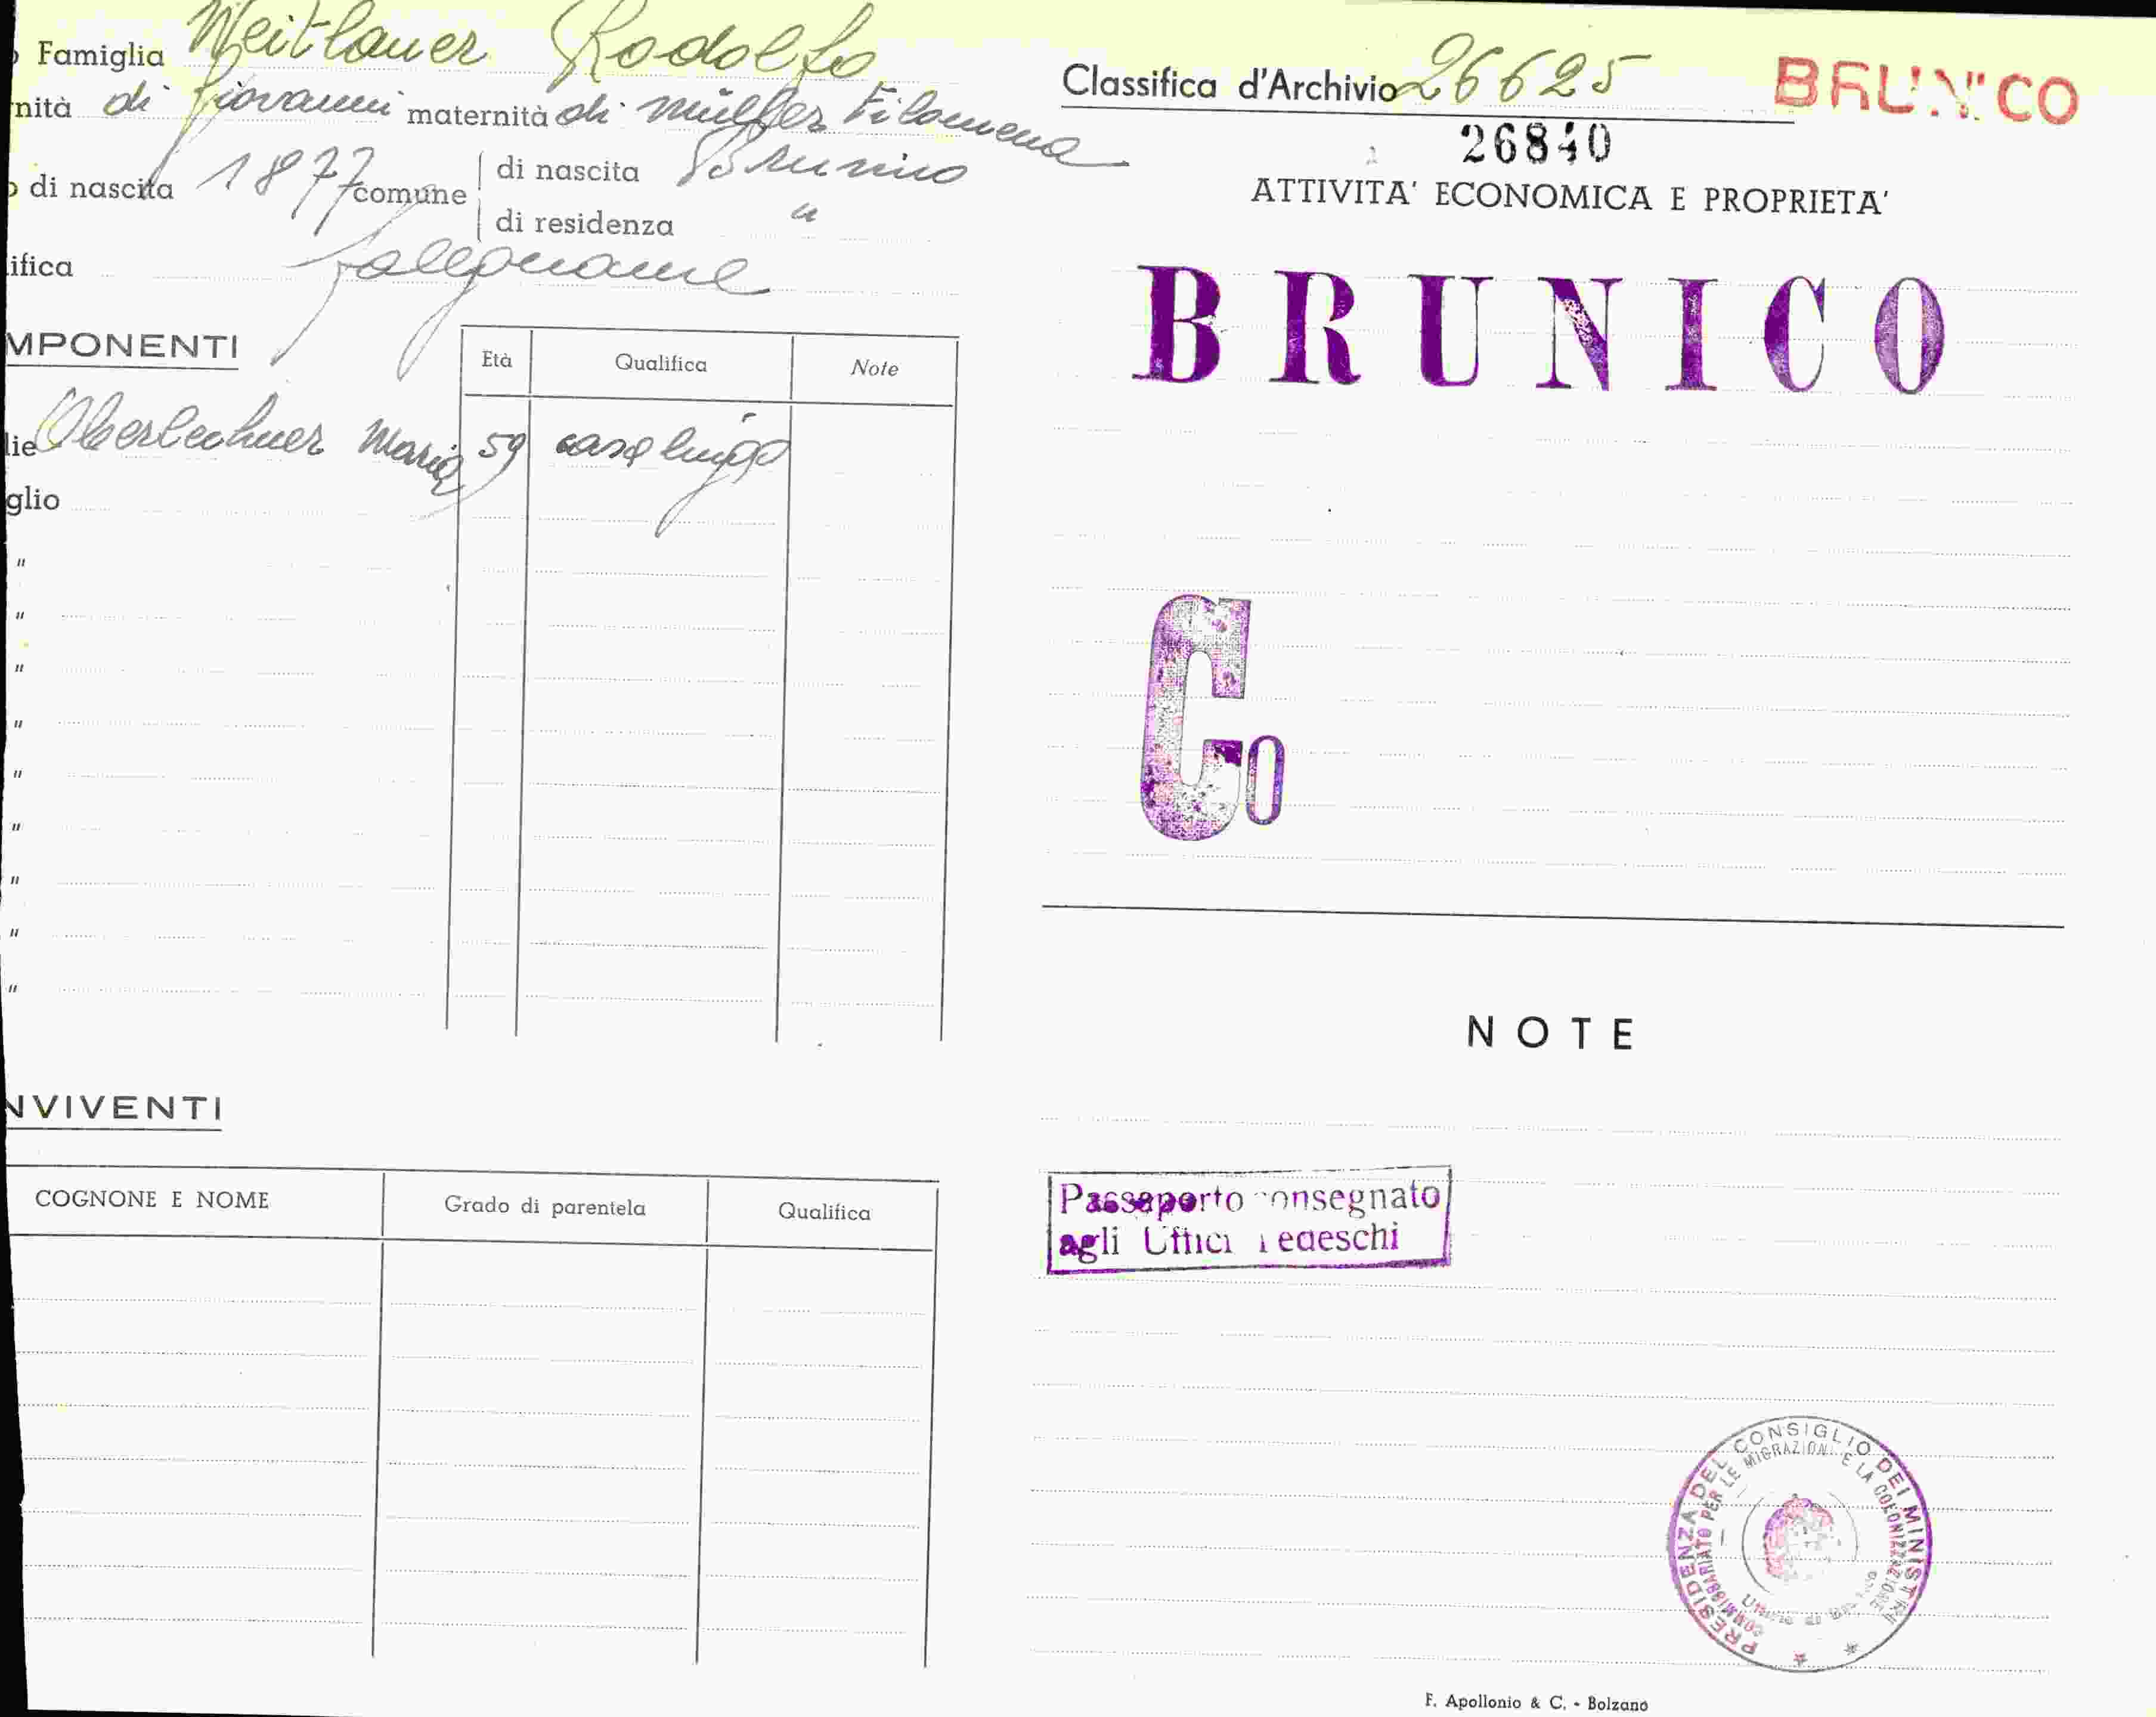 Famiglia Weitlauer Rodolfo
nità di Giovanni maternità di Müller Filomena
di nascita 1877 comune di nascita Brunico
di residenza "
ifica falegname
MPONENTI
Età Qualifica Note
lie Oberlechner Maria 59 casalinga
glio
"
"
"
"
"
"
"
"
"
NVIVENTI
COGNONE E NOME Grado di parentela Qualifica
Classifica d'Archivio 26625 BRUNICO
26840
ATTIVITA' ECONOMICA E PROPRIETA'
BRUNICO
Co
NOTE
Passaporto consegnato
agli Uffici Tedeschi
PRESIDENZA DEL CONSIGLIO DEI MINISTRI
COMMISSARIATO PER LE MIGRAZIONI E LA COLONIZZAZIONE
Ufficio di
F. Apollonio & C. - Bolzano